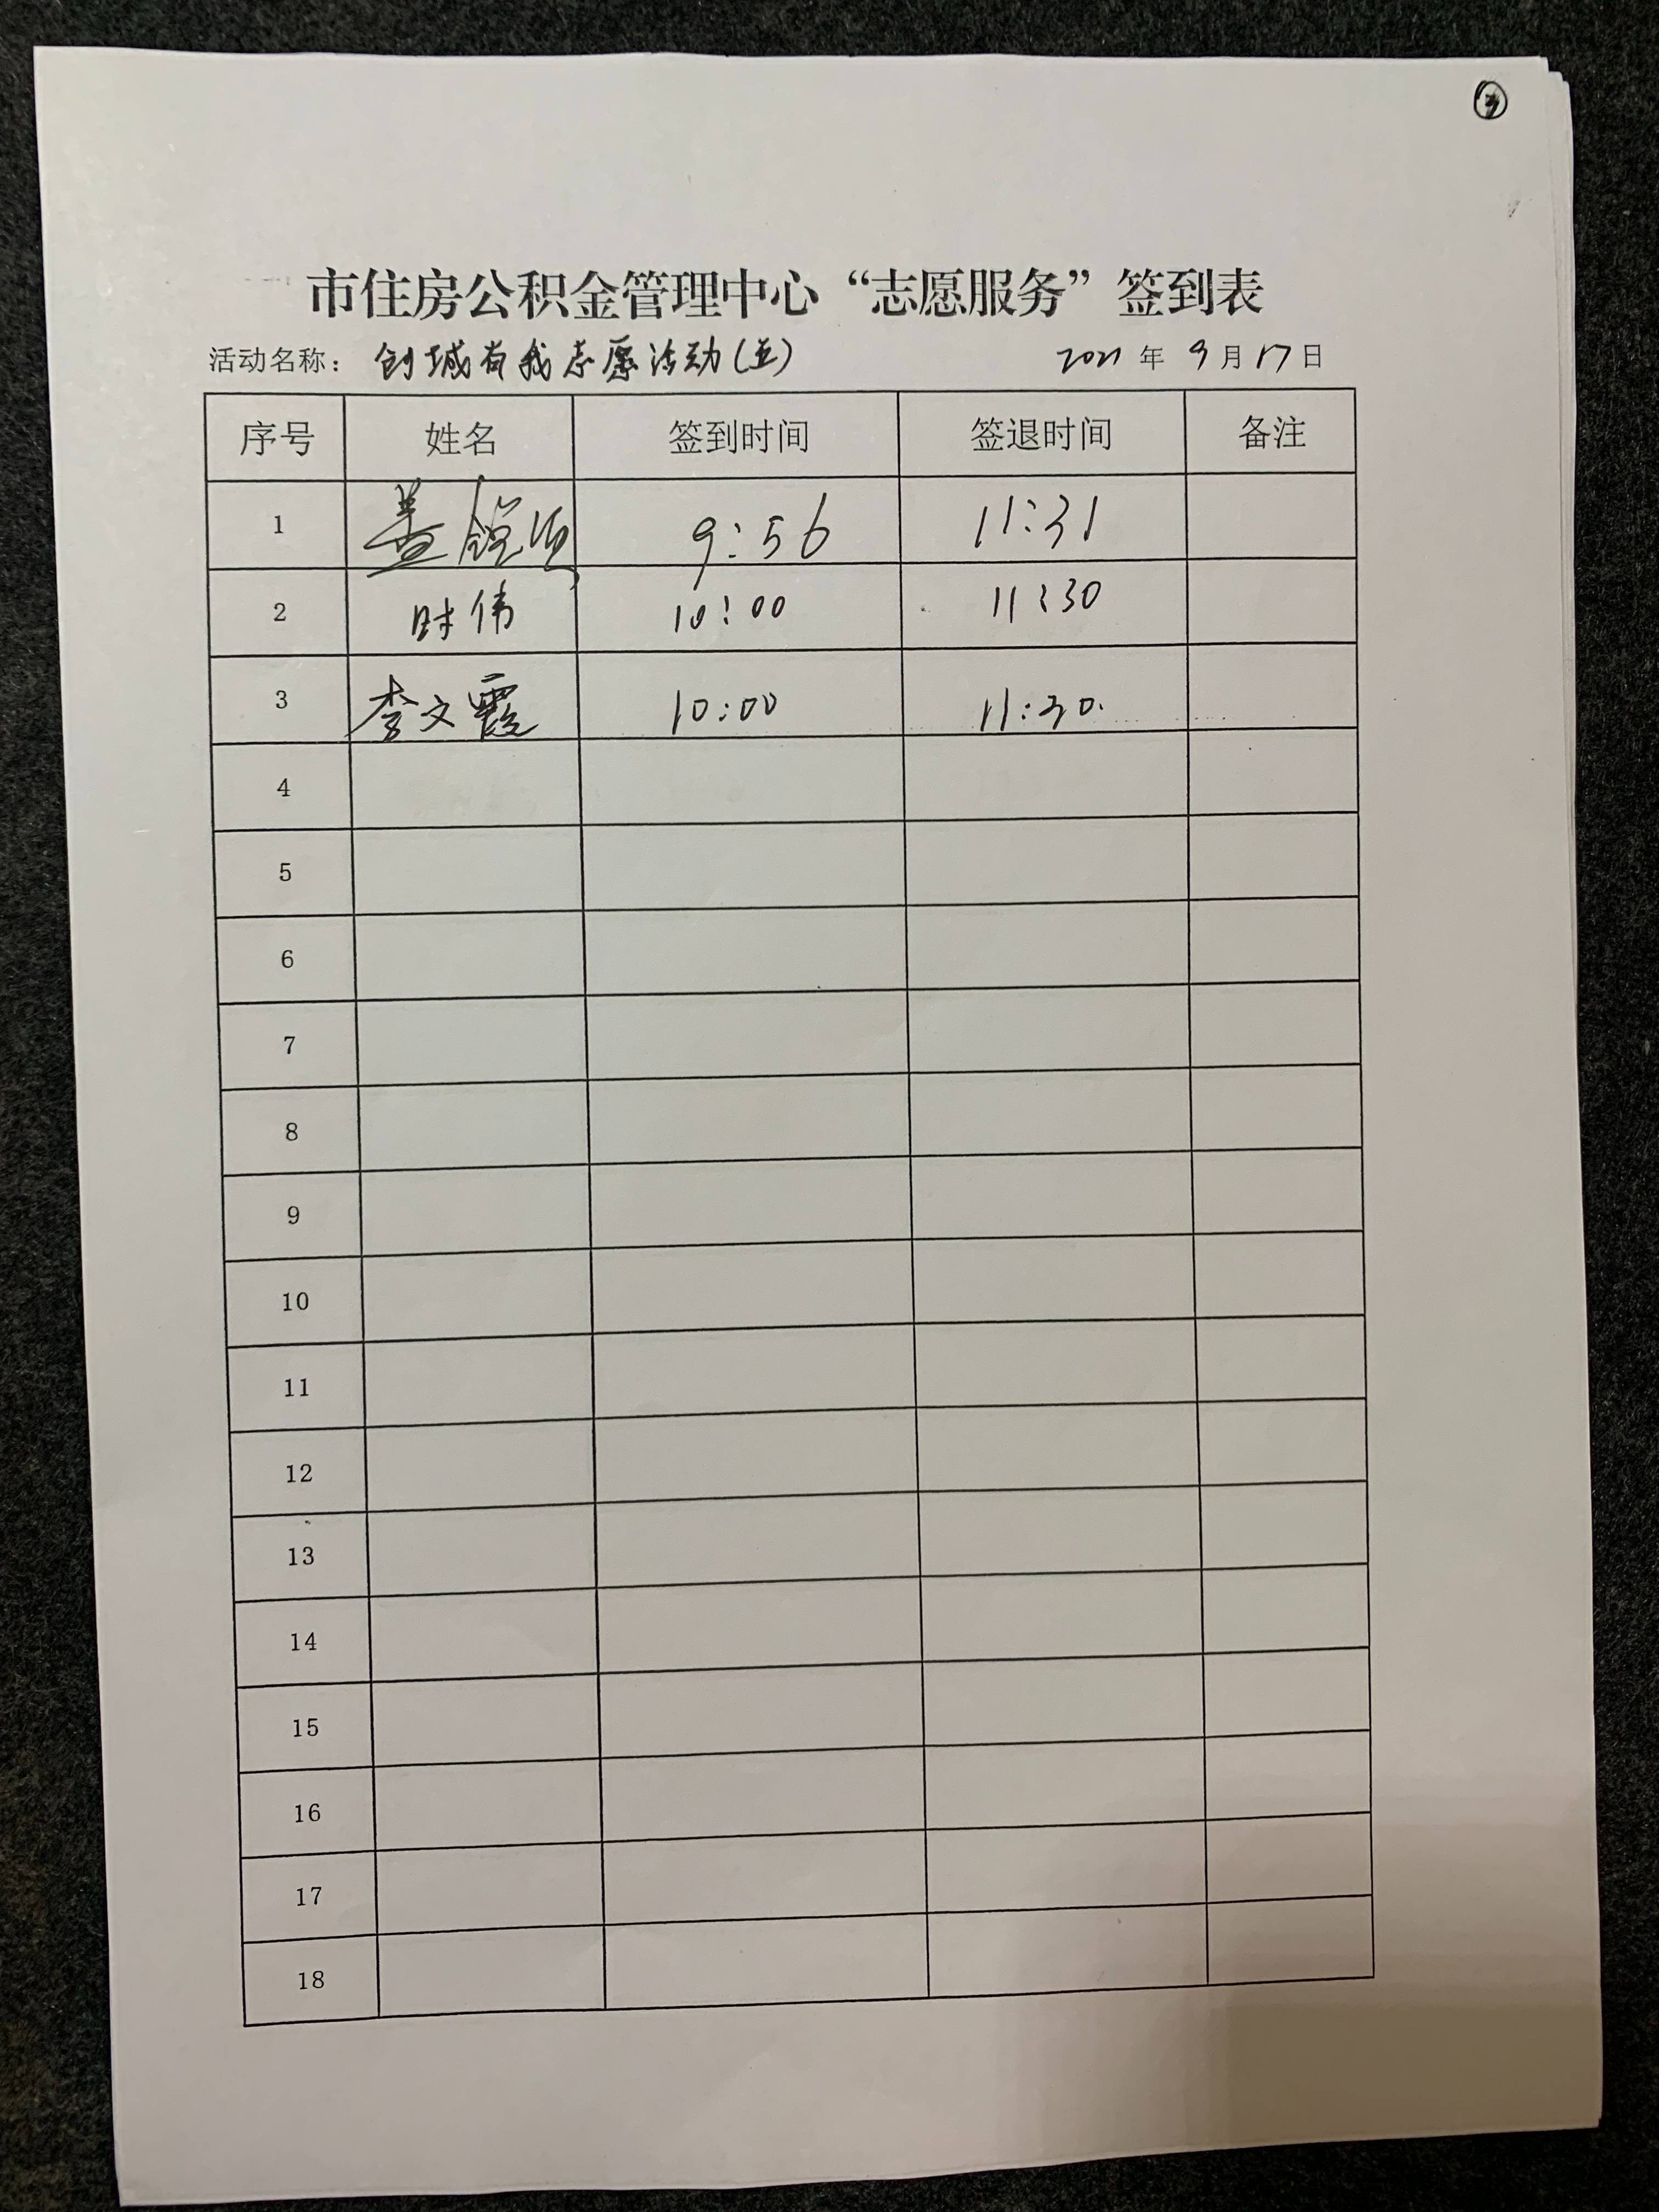 市住房公积金管理中心“志愿服务”签到表
活动名称：创城有我志愿活动(五) 2021年9月17日
序号 姓名 签到时间 签退时间 备注
1 盖 9:56 11:31
2 时伟 10:00 11:30
3 李文霞 10:00 11:30.
4
5
6
7
8
9
10
11
12
13
14
15
16
17
18